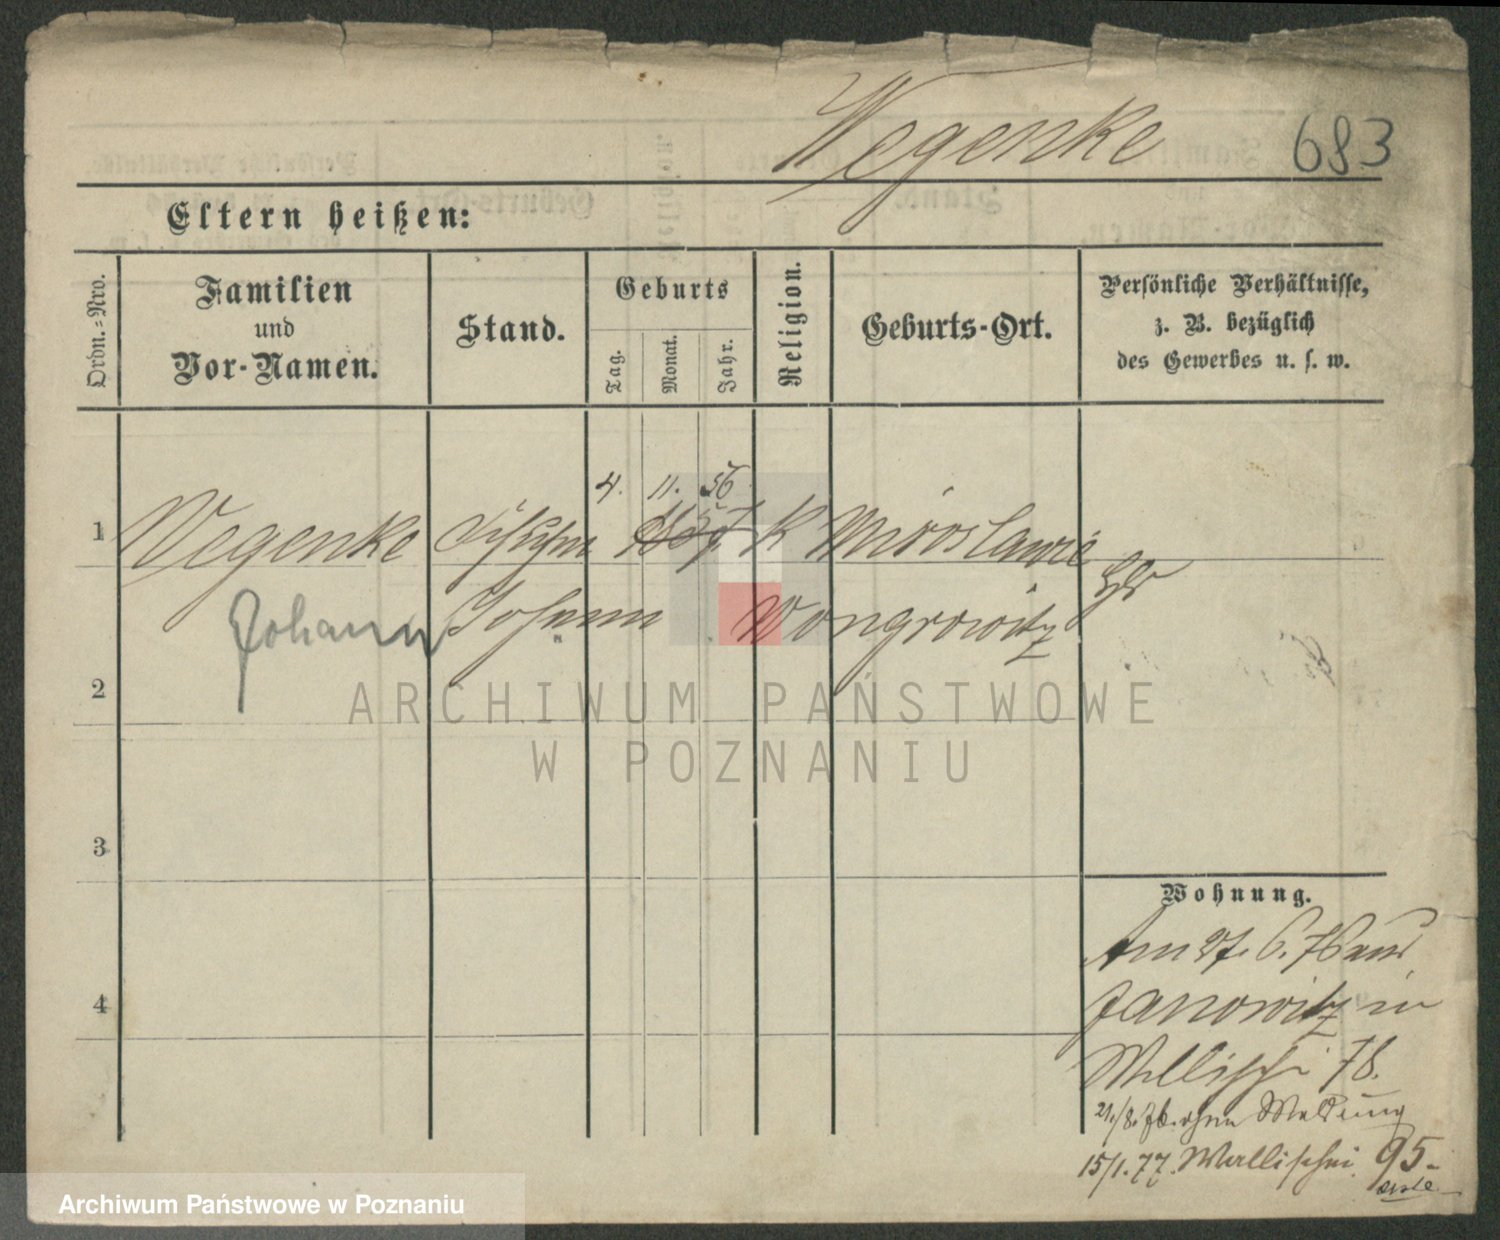 Wegenke 683
Eltern heißen:
Ordn.=Nro.
Familien
und
Vor-Namen.
Stand.
Geburts
Tag.
Monat.
Jahr.
Religion.
Geburts-Ort.
Persönliche Verhältnisse,
z. B. bezüglich
des Gewerbes u. s. w.
4. 11. 56
1 Wegenke K Miroslawie
Johann Johann Wongrowitz
2
3
4
Wohnung.
Am 27. 6. 76 aus
Janowitz in
Wallischei 78.
21./8. 76. ohne Meldung
15/1. 77. Wallischei 95.
ARCHIWUM PAŃSTWOWE
W POZNANIU
Archiwum Państwowe w Poznaniu